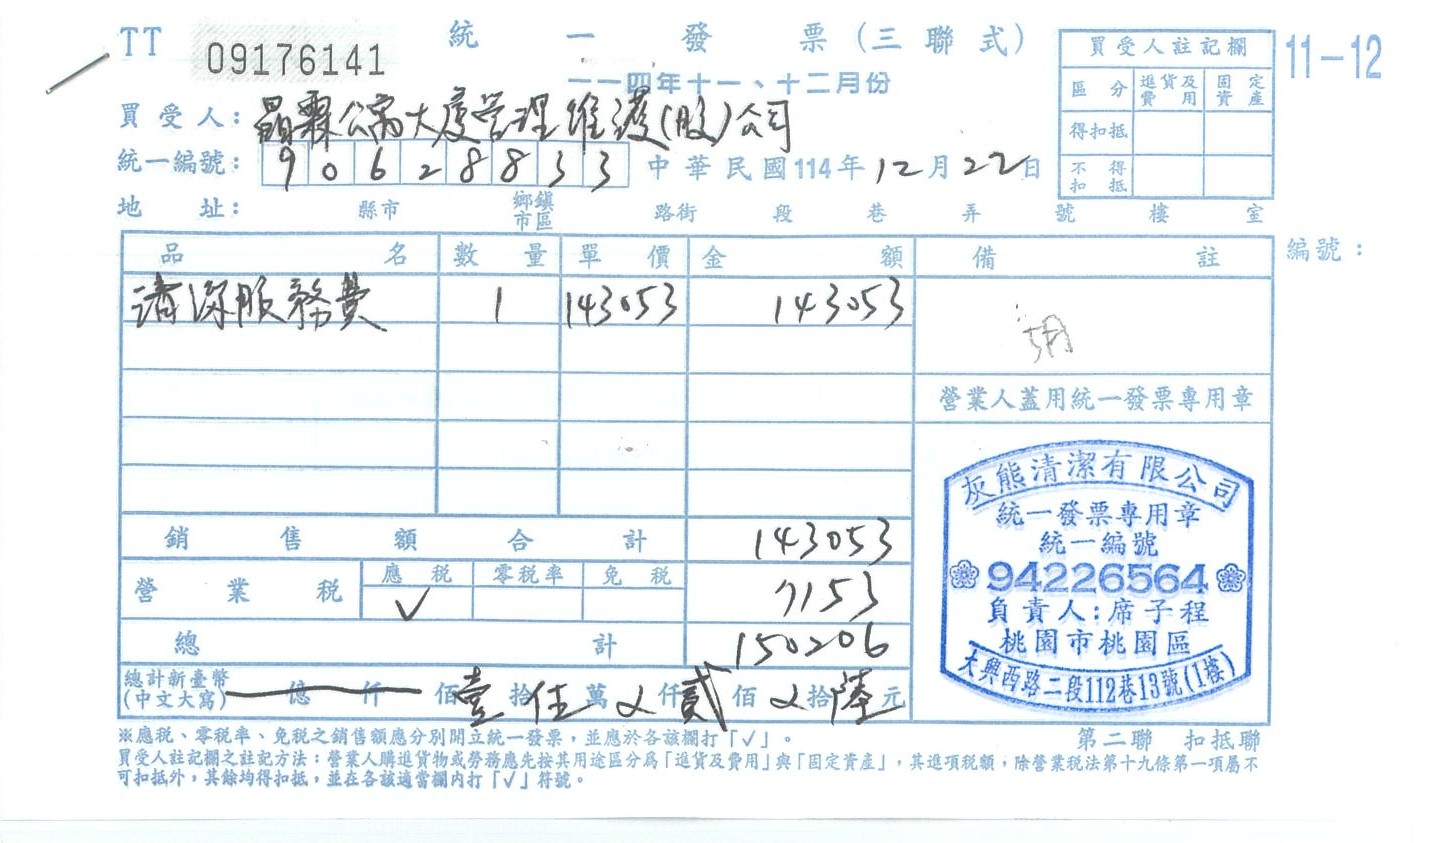 TT 09176141 統一發票(三聯式) 11-12
一一四年十一、十二月份
買受人: 晶霖公寓大廈管理維護(股)公司
統一編號: 90628833 中華民國114年12月22日
地址: 縣市 鄉鎮市區 路街 段 巷 弄 號 樓 室
買受人註記欄
區分 進貨及費用 固定資產
得扣抵
不得扣抵
編號:
品名 數量 單價 金額 備註
清潔服務費 1 143053 143053
營業人蓋用統一發票專用章
銷售額合計 143053
營業稅 應稅 零稅率 免稅
✓ 7153
總計 150206
總計新臺幣(中文大寫) 億 仟 佰壹拾伍萬 仟貳佰 拾陸元
灰熊清潔有限公司
統一發票專用章
統一編號
94226564
負責人:席子程
桃園市桃園區
大興西路二段112巷13號(1樓)
※應稅、零稅率、免稅之銷售額應分別開立統一發票,並應於各該欄打「✓」。
第二聯 扣抵聯
買受人註記欄之註記方法:營業人購進貨物或勞務應先按其用途區分為「進貨及費用」與「固定資產」,其進項稅額,除營業稅法第十九條第一項屬不
可扣抵外,其餘均得扣抵,並在各該適當欄內打「✓」符號。